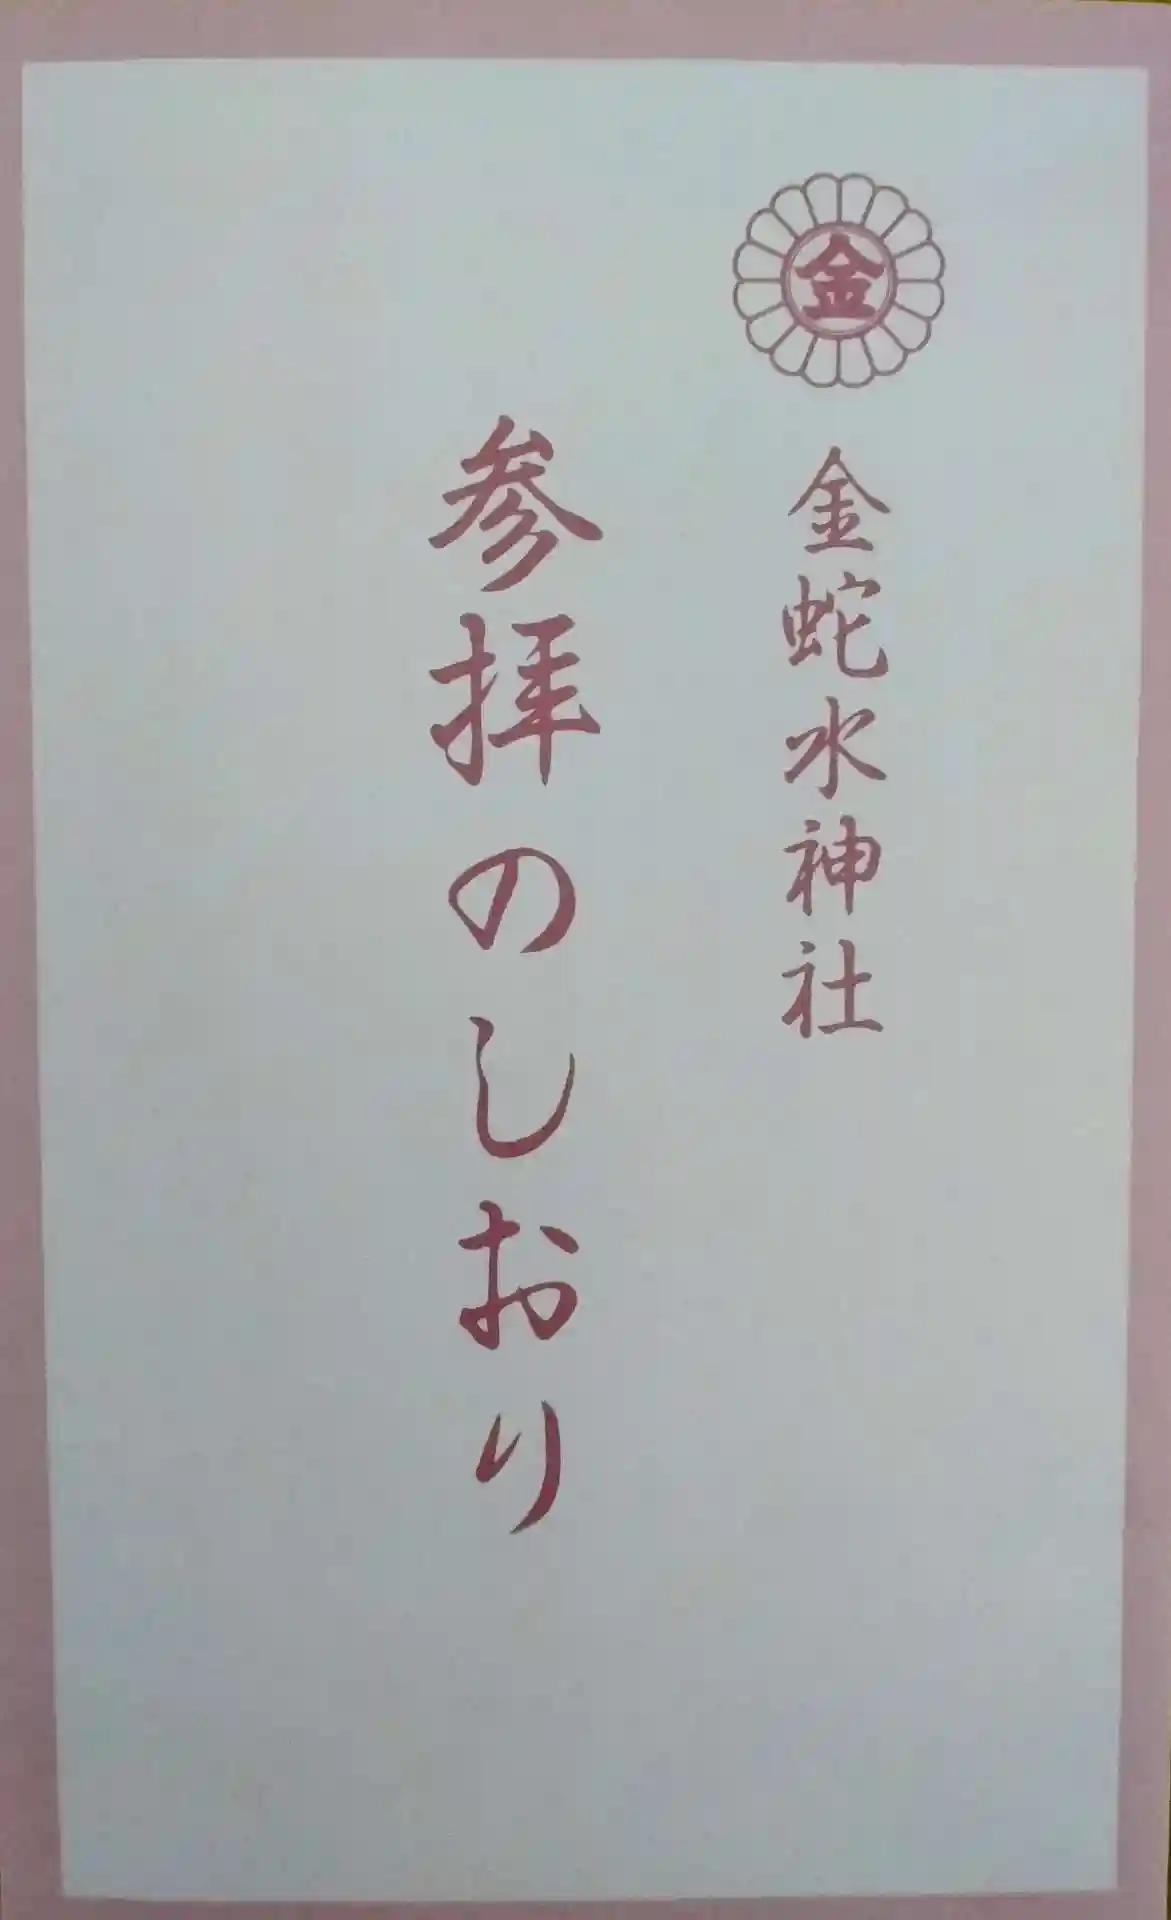 金
金蛇水神社
参拝のしおり